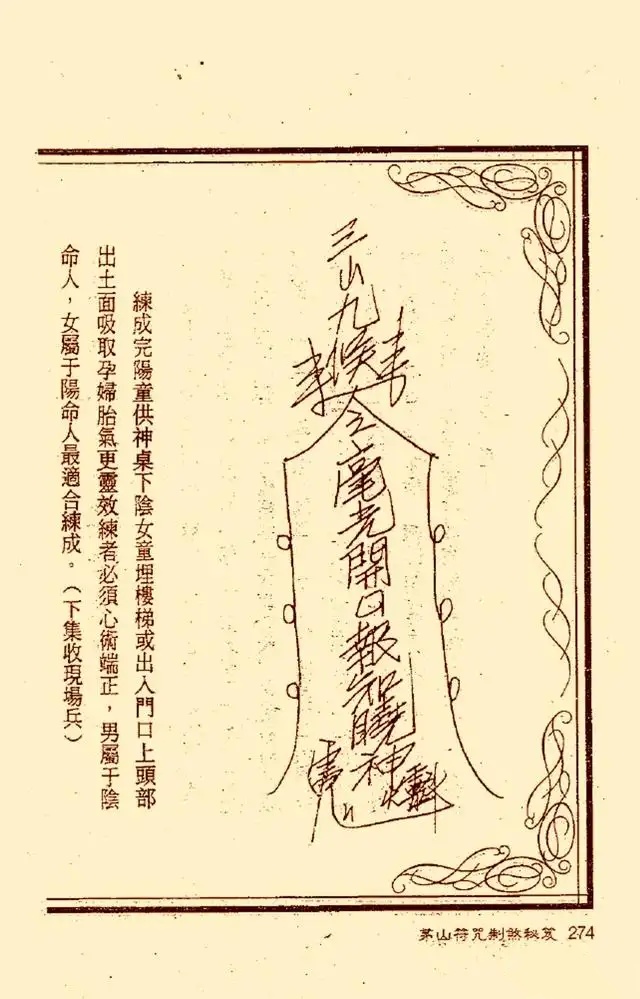 三山九侯令毫光開口報知曉神
練成完陽童供神桌下陰女童埋樓梯或出入門口上頭部
出土面吸取孕婦胎氣更靈效練者必須心術端正，男屬于陰
命人，女屬于陽命人最適合練成。（下集收現場兵）
茅山符咒制煞秘笈 274